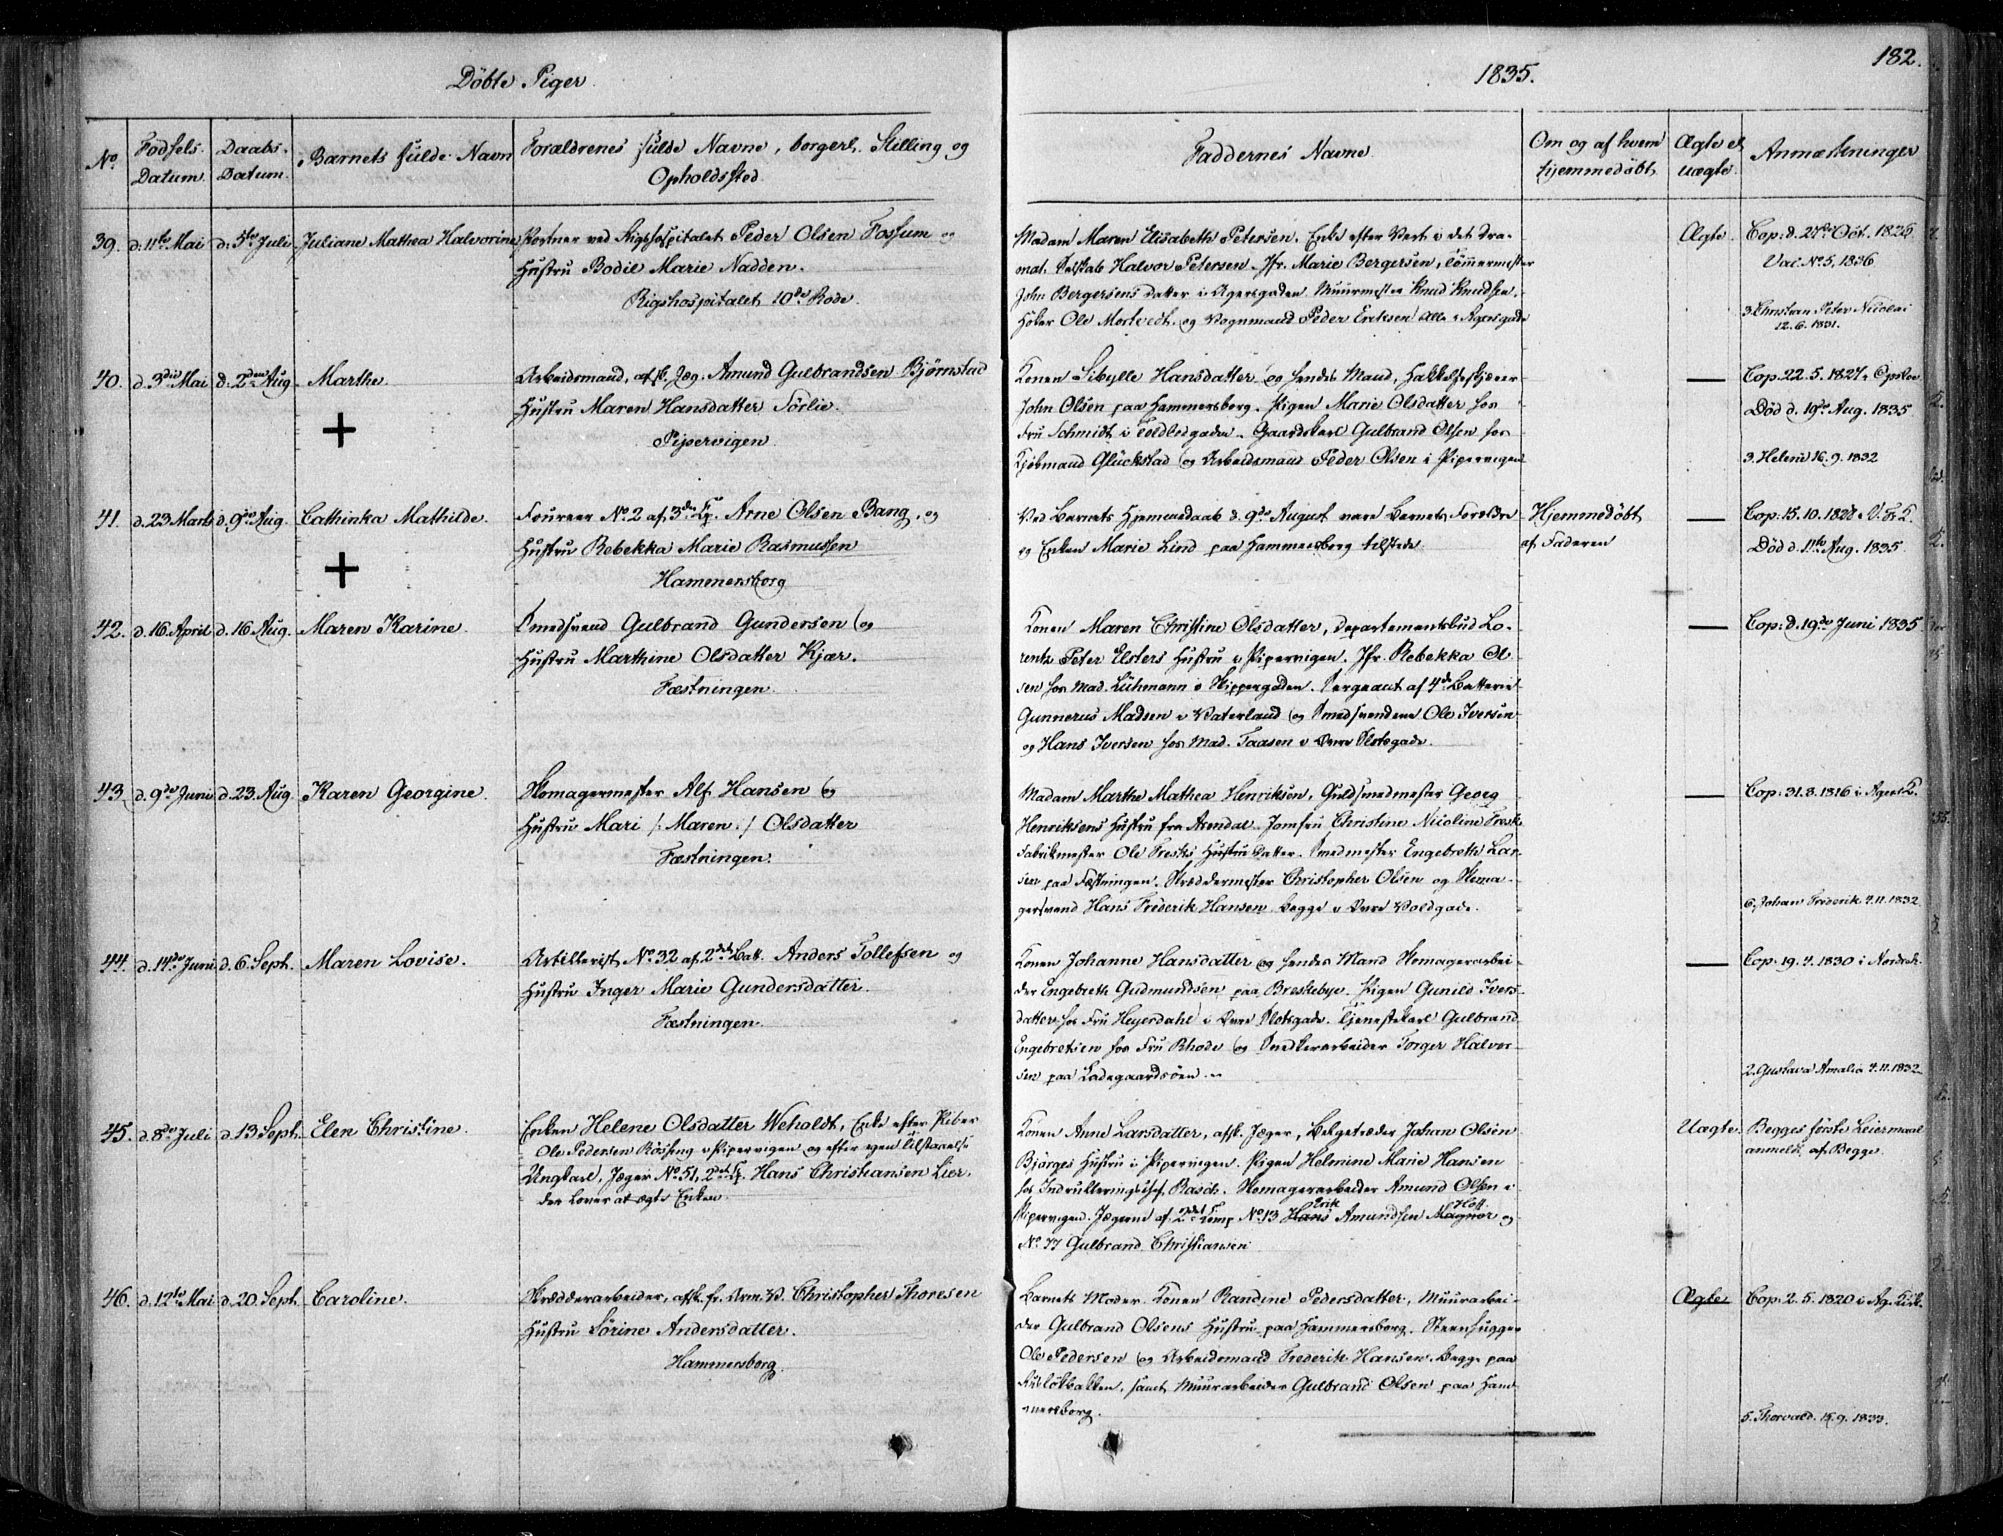 Döbte Piger.
1835.
182.
No.
Fødsels Datum.
Daabs-Datum.
Barnets fulde Navn
Forældrenes fulde Navne, borgerl. Stilling og Opholdssted.
Faddernes Navne.
Om og af hvem hjemmedøbt.
Ægte el. uægte.
Anmærkninger
39. d. 11te Mai d. 5te Juli Juliane Mathea Halvorine
Portner ved Rigshospitalet Peder Olsen Fossum og
Hustru Bodil Marie Nadden.
Rigshospitalet 10de Rode.
Madam Maren Elisabeth Petersen, Enke efter Vert i det Dra-
mat. Selskab Halvor Petersen. Jfr. Marie Bergersen, Tømmermester
John Bergersens Datter i Agersgaden. Muurmester Knud Knudsen,
Høker Ole Mortvedt, og Vognmand Peder Eriksen alle i Agersgade
Ægte.
Cop: d. 27de Oct. 1825
Vac. No 5, 1836
3. Christian Peter Nicolai
12.6.1831.
40. d. 3die Mai d. 2den Aug. Marthe
Arbeidsmand, afsk. Jæg. Amund Gulbrandsen Bjørnstad
Hustru Maren Hansdatter Sörlie.
Pipervigen
Konen Sibylle Hansdatter og hendes Mand, Hakkelseskjærer
John Olsen paa Hammersborg. Pigen Marie Olsdatter hos
Fru Schmidt i Toldbodgaden. Gaardskarl Gulbrand Olsen hos
Kjøbmand Glückstad og Arbeidsmand Peder Olsen i Pipervigen
Cop. 22.5.1827 i Opsloe
Död d. 19de Aug. 1835
3. Helene 16.9.1832
41. d. 23 Marts d. 9de Aug. Cathinka Mathilde.
Foureer No. 2 af 3die Cp. Arne Olsen Bang, og
Hustru Rebekka Marie Rasmussen
Hammersborg
Ved Barnets Hjemmedaab d. 9de August vare Barnets Forældre
og Enken Marie Lind paa Hammersborg tilstede.
Hjemmedöbt
af Faderen
Cop: 15.10.1828 i V. Fr. K.
Död d. 11te Aug. 1835.
42. d. 16. April d. 16 Aug. Maren Karine.
Smedsvend Gulbrand Gundersen og
Hustru Marthine Olsdatter Kjær.
Fæstningen.
Konen Maren Christine Olsdatter, Departementsbud Lo-
rentz Peter Elsters Hustru i Pipervigen. Jfr. Rebekka Ol-
sen hos Mad. Lühmann i Skippergaden. Sergeant af 4de Batterie
Gunnerus Madsen i Vaterland og Smedsvendene Ole Iversen
og Hans Iversen hos Mad. Taasen i Øvre Slotsgade.
Cop: D. 19de Juni 1835
43. d. 9de Juni d. 23. Aug. Karen Georgine.
Skomagermester Alf Hansen og
Hustru Mari /: Maren :/ Olsdatter
Fæstningen.
Madam Marthe Mathea Henriksen, Guldsmedmester Georg
Henriksens Hustru fra Arendal. Jomfru Christine Nicoline Fresk
Fabrikmester Ole Fresks Hustrus Datter. Smedmester Engebreth Lar-
sen paa Fæstningen. Skræddermester Christopher Olsen og Skoma-
gersvend Hans Frederik Hansen begge i Øvre Voldgade.
Cop: 31.8.1816 i Agers K.
6. Johan Frederik 4.11.1832
44. d. 14de Juni d. 6. Sept. Maren Lovise.
Artillerist No. 32 af 2det Batt. Anders Tollefsen og
Hustru Inger Marie Gundersdatter.
Fæstningen.
Konen Johanne Hansdatter og hendes Mand Skomagerarbei-
der Engebreth Gudmundsen paa Breskebye. Pigen Gunild Ivers-
datter hos Fru Heyerdahl i Øvre Slotsgade. Tjenestekarl Gulbrand
Engebretsen hos Fru Rhode og Snedkerarbeider Torger Halvor-
sen paa Ladegaardsöen.
Cop. 19.4.1830 i Nordreh.
2. Gustava Amalia 4.11.1832
45. d. 8de Juli d. 13 Sept. Elen Christine.
Enken Helene Olsdatter Weholdt, Enke efter Riber
Ole Pedersen Rössing i Pipervigen og efter egen Tilstaaelse
Ungkarl, Jæger No. 51, 2det Cp. Hans Christiansen Lier
der lover at ægte Enken.
Konen Anne Larsdatter, afsk. Jæger, Belgetræder Johan Olsen
Björges Hustru i Pipervigen. Pigen Helmine Marie Hansen
hos Indrulleringschef Basch. Skomagerarbeider Amund Olsen i
Pipervigen. Jægerne af 2det Komp No 13 Hans Erik Amundsen Magnor Hoff og
No. 77 Gulbrand Christiansen
Uægte.
Begges første Leiermaal
anmeld. af Begge.
46. d. 12te Mai d. 20. Sept Caroline.
Skrædderarbeider, afsk. fr. Arm. V. Christopher Thoresen
Hustru Sörine Andersdatter.
Hammersborg.
Barnets Moder. Konen Randine Pedersdatter, Muurarbei-
der Gulbrand Olsens Hustru paa Hammersborg. Steenhugger
Ole Pedersen og Arbeidsmand Frederik Hansen, begge paa
Ruselökbakken, samt Muurarbeider Gulbrand Olsen paa Ham-
mersborg.
Ægte
Cop: 2.5.1820 i Ag. Kirk.
5. Thorvald. 15.9.1833.